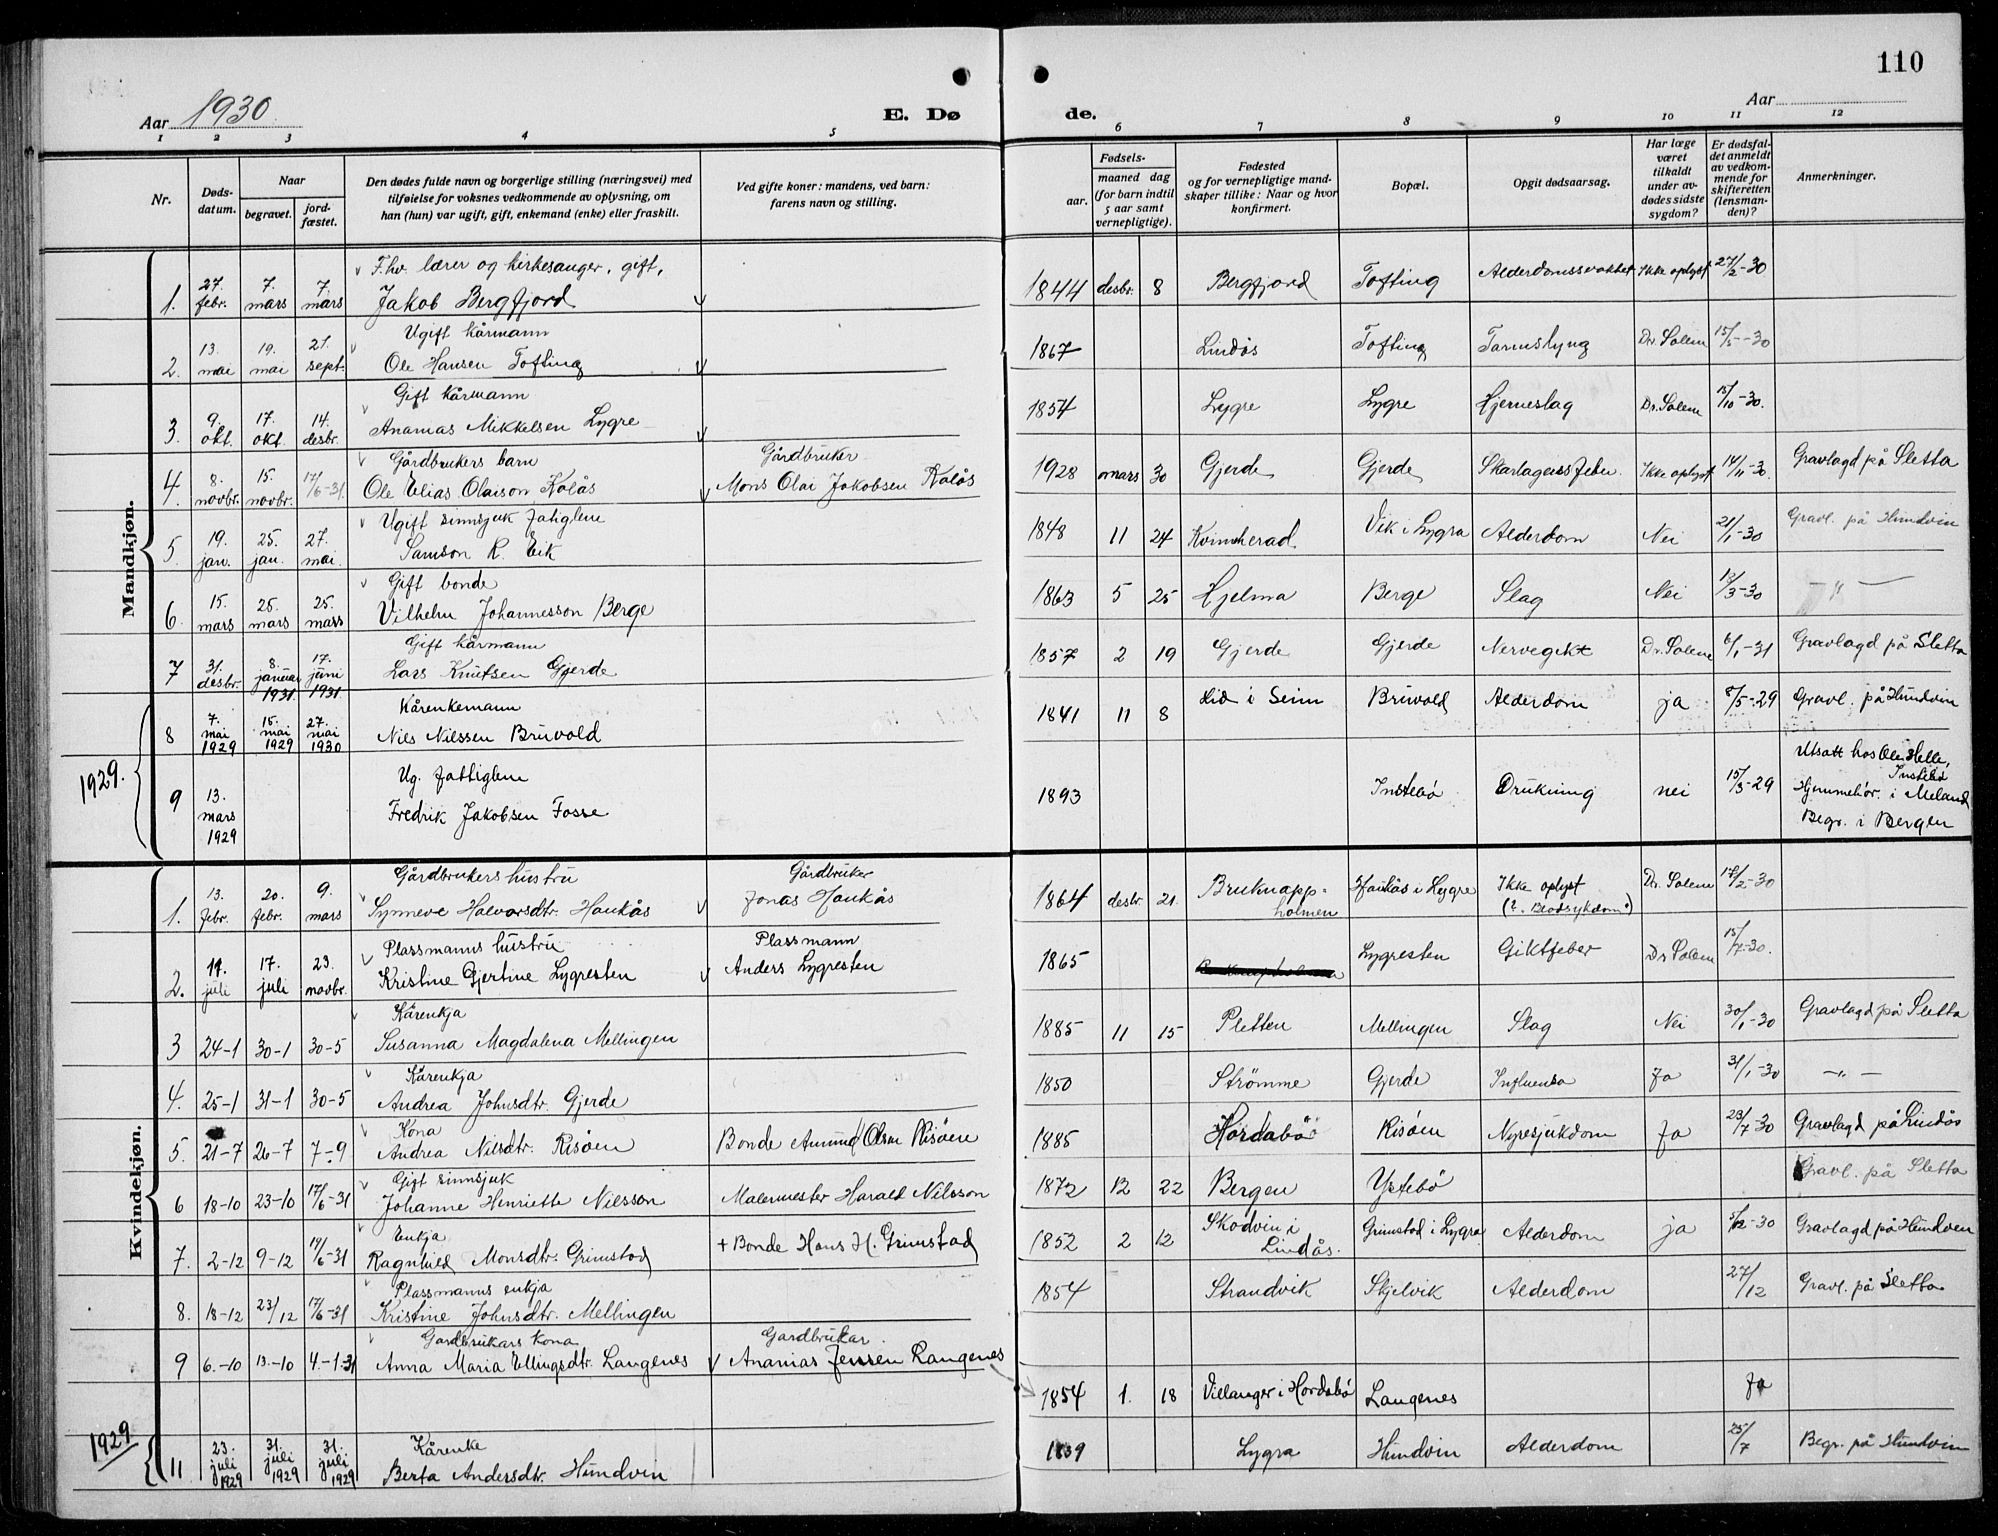 110
Aar 1930
E. Dø
de.
Aar
1 2 3 4 5 6 7 8 9 10 11 12
Nr.
Døds-
datum.
Naar
begravet.
jord-
fæstet.
Den dødes fulde navn og borgerlige stilling (næringsvei) med
tilføielse for voksnes vedkommende av oplysning, om
han (hun) var ugift, gift, enkemand (enke) eller fraskilt.
Ved gifte koner: mandens, ved barn:
farens navn og stilling.
Fødsels-
aar.
maaned dag
(for barn indtil
5 aar samt
vernepligtige).
Fødested
og for vernepligtige mand-
skaper tillike: Naar og hvor
konfirmert.
Bopæl.
Opgit dødsaarsag.
Har læge
været
tilkaldt
under av-
dødes sidste
sygdom?
Er dødsfal-
det anmeldt
av vedkom-
mende for
skifteretten
(lensman-
den)?
Anmerkninger.
Mandkjøn.
F.hv. lærer og kirkesanger, gift,
1. 27. febr. 7. mars 7. mars Jakob Bergfjord 1844 desbr. 8 Bergfjord Tofting Alderdomssvakhet Ikke oplyst 27/2-30
Ugift kårmann
2. 13. mai 19. mai 21. sept. Ole Hansen Tofting 1867 Lindås Tofting Tarmslyng Dr. Solem 15/5-30
Gift kårmann
3. 9. okt. 17. okt. 14. desbr. Ananias Mikkelsen Lygre 1854 Lygre Lygre Hjerneslag Dr. Solem 15/10-30.
Gårdbrukers barn Gårdbruker
4. 8. novbr. 15. novbr. 17/6-31. Ole Elias Olaison Kolås Mons Olai Jakobsen Kolås 1928 mars 30 Gjerde Gjerde Skarlagensfeber Ikke oplyst 14/11-30 Gravlagd på Sletta
Ugift sinnsjuk fatiglem
5. 19. jan. 25. jan. 27. mai Samson R. Eik 1848 11 24 Kvinnherad Vik i Lygra Alderdom Nei 21/1-30 Gravl. på Hundvin
Gift bonde
6. 15. mars 25. mars 25. mars Vilhelm Johannesson Berge 1863 5 25 Hjelma Berge Slag Nei 18/3-30 — " —
Gift kårmann
7 31. desbr. 8. januar 1931 17. juni 1931. Lars Knutsen Gjerde 1857 2 19 Gjerde Gjerde Nervegikt Dr. Solem 6/1-31 Gravlagd på Sletta
Kårenkemann
8 7. mai 1929 15. mai 1929 27. mai 1930 Nils Nilssen Bruvold 1841 11 8 Lid i Seim Bruvold Alderdom ja 8/5-29 Gravl. på Hundvin
1929.
Ug. fattiglem
9 13. mars 1929 Fredrik Jakobsen Fosse 1893 Instebø Drukning nei 15/3-29 Utsatt hos Ole Helle, Instebø
Hjemmehør. i Meland
Begr. i Bergen
Kvindekjøn.
Gårdbrukers hustru Gårdbruker
1. 13. febr. 20. febr. 9. mars Synneve Halvorsdtr. Haukås Jonas Haukås 1864 desbr. 21. Bruknapp-
holmen Haukås i Lygre Ikke oplyst
(?. Blodsykdom.) Dr. Solem 17/2-30
Plassmanns hustru Plassmann
2. 11. juli 17. juli 23. novbr. Kristine Gjertine Lygresten Anders Lygresten 1865 Lygresten Giktfeber Dr Solem 15/7-30.
Kårenkja
3 24-1 30-1 30-5 Susanna Magdalena Mellingen 1885 11 15 Pletten Mellingen Slag Nei 30/1-30 Gravlagd på Sletta
Kårenkja
4. 25-1 31-1 30-5 Andrea Johnsdtr. Gjerde 1850 Strømme Gjerde Influensa Ja 31/1-30 —"—
Kona
5. 21-7 26-7 7-9 Andrea Nilsdtr. Risøen Bonde Amund Olsen Risøen 1885 Hordabø Risøen Nyresjukdom Ja 23/7-30 Gravlagd på Lindås
Gift sinnsjuk
6 18-10 23-10 17/6-31 Johanne Henriette Nilsson Malermester Harald Nilsson 1872 12 22 Bergen Ystebø Gravl. på Sletta
Enkja
7. 2-12 9-12 14/6-31 Ragnhild Monsdtr. Grimstad + Bonde Hans H. Grimstad 1852 2 12 Skodvin i
Lindås. Grimstad i Lygra Alderdom ja 5/12-30 Gravlagd på Hundven
Plassmanns enkja
8. 18-12 23/12 17/6-31 Kristine Johnsdtr. Mellingen 1854 Strandvik Skjelvik Alderdom 27/12 Gravl. på Sletta
Gardbrukars kona Gardbrukar.
9 6.-10 13.-10 4.-1.31 Anna Maria Ellingsdtr. Langenes Ananias Jensen Langenes
1854 1. 18 Villanger i Hordabø Langenes Ja
1929
Kårenke
11 23. juli 1929 31. juli 1929 31. juli 1929 Berta Andersdtr. Hundvin 1839 Lygra Hundvin Alderdom 25/7 Begr. på Hundvin